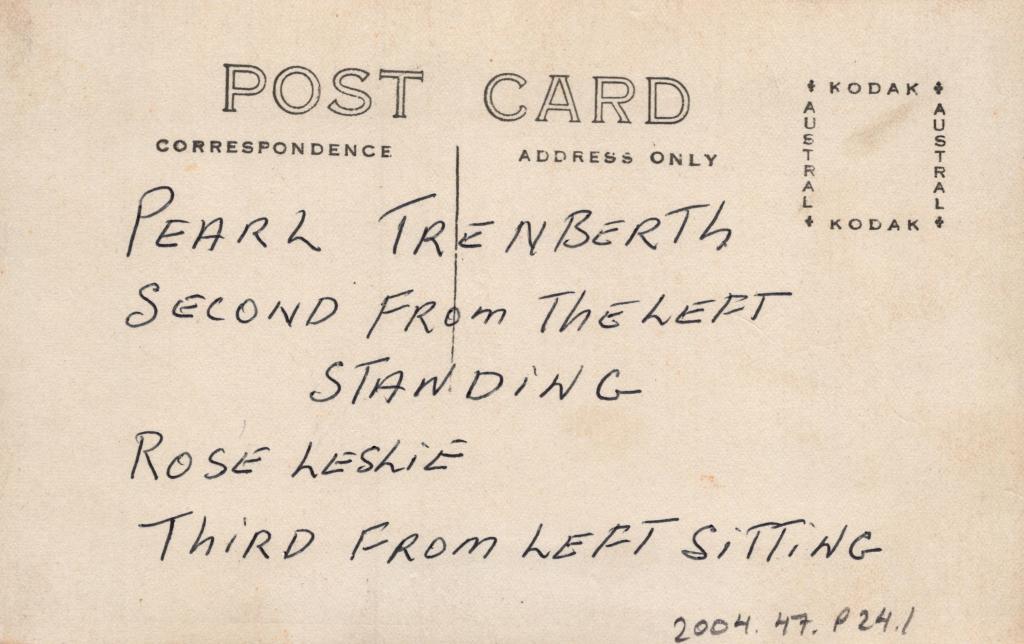 POST CARD
CORRESPONDENCE
ADDRESS ONLY
KODAK
AUSTRAL
AUSTRAL
KODAK
PEARL TRENBERTh
SECOND FROm ThE LEFT
STANDiNG
ROSE LESLiE
ThiRD FROm LEFT SiTTiNG
2004. 47. P24.1